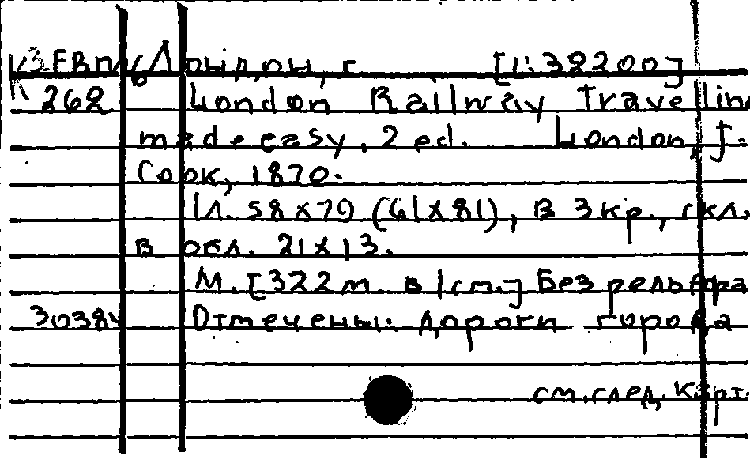 Лондон, г. [1:32200]
К 262 London Railway Travelin
made easy, 2 ed. London, J.
Cook, 1870.
1 л. 58x79 (61x81), в 3 кр., скл.
в обл. 21x13.
М. [322 м. в 1 см.] Без рельефа
30384 Отмечены: дороги города
см. след. карт.